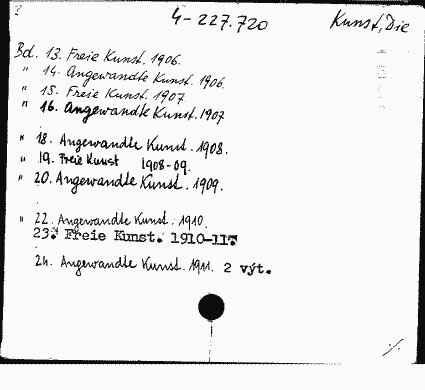 4-227.720 Kunst, Die
Bd. 13. Freie Kunst. 1906.
" 14. Angewandte Kunst. 1906.
" 15. Freie Kunst. 1907.
" 16. Angewandte Kunst. 1907
" 18. Angewandte Kunst. 1908.
" 19. Freie Kunst 1908-09.
" 20. Angewandte Kunst. 1909.
" 22. Angewandte Kunst. 1910.
23. Freie Kunst. 1910-11.
24. Angewandte Kunst. 1911. 2 výt.
./.